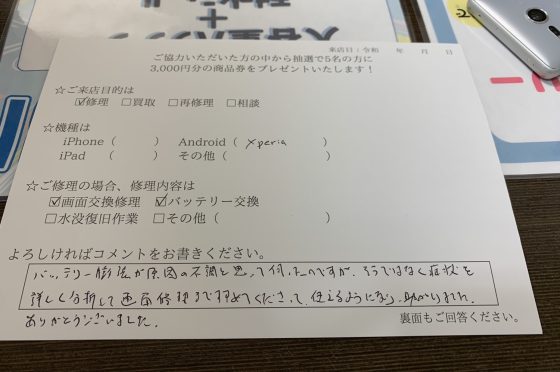 大容量バッ
+
来店日：令和　　年　　月　　日
ご協力いただいた方の中から抽選で5名の方に
3,000円分の商品券をプレゼントいたします！
☆ご来店目的は
☑修理　□買取　□再修理　□相談
☆機種は
iPhone（　　　）　Android（ Xperia　　　）
iPad　（　　　）　その他（　　　　　　）
☆ご修理の場合、修理内容は
☑画面交換修理　☑バッテリー交換
□水没復旧作業　□その他（　　　　　　）
よろしければコメントをお書きください。
バッテリー膨張が原因の不調と思って伺ったのですが、そうではなく症状を
詳しく分析して画面修理まで進めてくださって、使えるようになり助かりました。
ありがとうございました。
裏面もご回答ください。